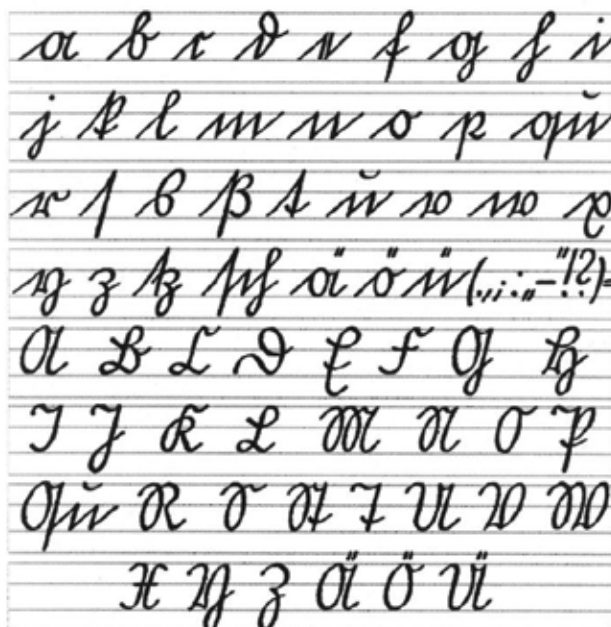 a b c d e f g h i
j k l m n o p qu
r ſ s ß t u v w x
y z tz ſch ä ö ü (.,;:„-"!?)=
A B C D E F G H
I J K L M N O P
Qu R S St T U V W
X Y Z Ä Ö Ü